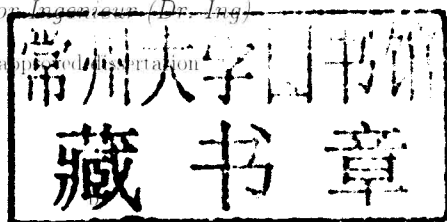 or Ingenieur (Dr. Ing)
approved dissertation
常州大学图书馆
藏书章